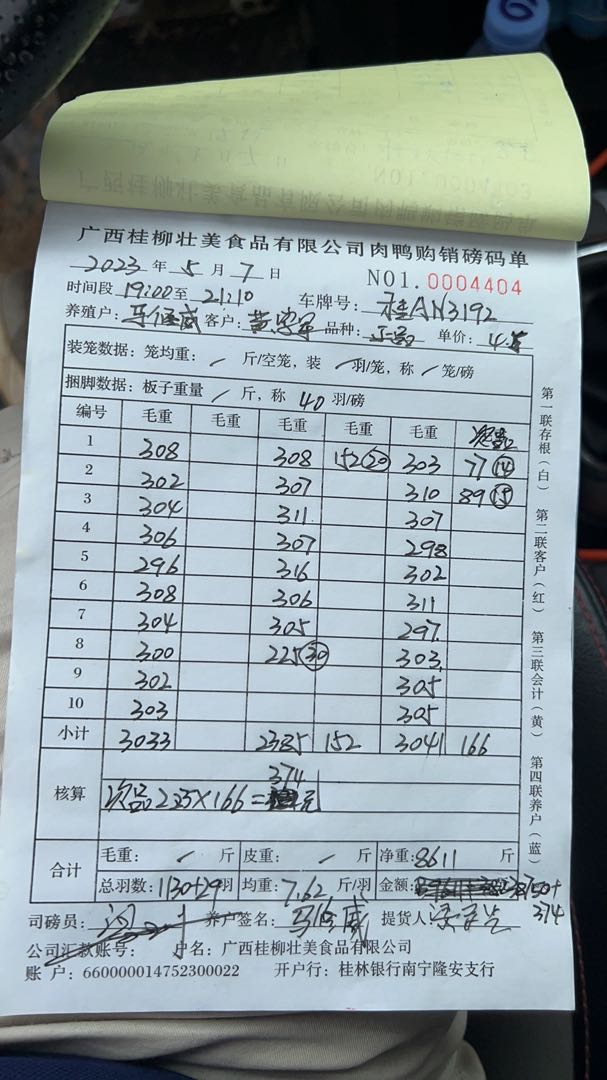 广西桂柳壮美食品有限公司肉鸭购销磅码单
2023 年 5 月 7 日 NO1. 0004404
时间段 19:00 至 21:10 车牌号: 桂AN3192
养殖户: 马 威 客户: 黄 军 品种: 单价: 4.5
装笼数据: 笼均重: / 斤/空笼, 装 / 羽/笼, 称 / 笼/磅
捆脚数据: 板子重量 / 斤, 称 40 羽/磅
编号 毛重 毛重 毛重 毛重 毛重 次品
1 308 308 152 20 303 77 14
2 302 307 310 89 15
3 304 311 307
4 306 307 298
5 296 316 302
6 308 306 311
7 304 305 297
8 300 225 30 303
9 302 305
10 303 305
小计 3033 2385 152 3041 166
核算 374
次品 2.25×166= 元
合计 毛重: / 斤 皮重: / 斤 净重: 8611 斤
总羽数: 1130+29 羽 均重: 7.62 斤/羽 金额: 38750+
374
司磅员: 养户签名: 马 威 提货人:
公司汇款账号: 户名: 广西桂柳壮美食品有限公司
账 户: 660000014752300022 开户行: 桂林银行南宁隆安支行
第一联存根(白) 第二联客户(红) 第三联会计(黄) 第四联养户(蓝)